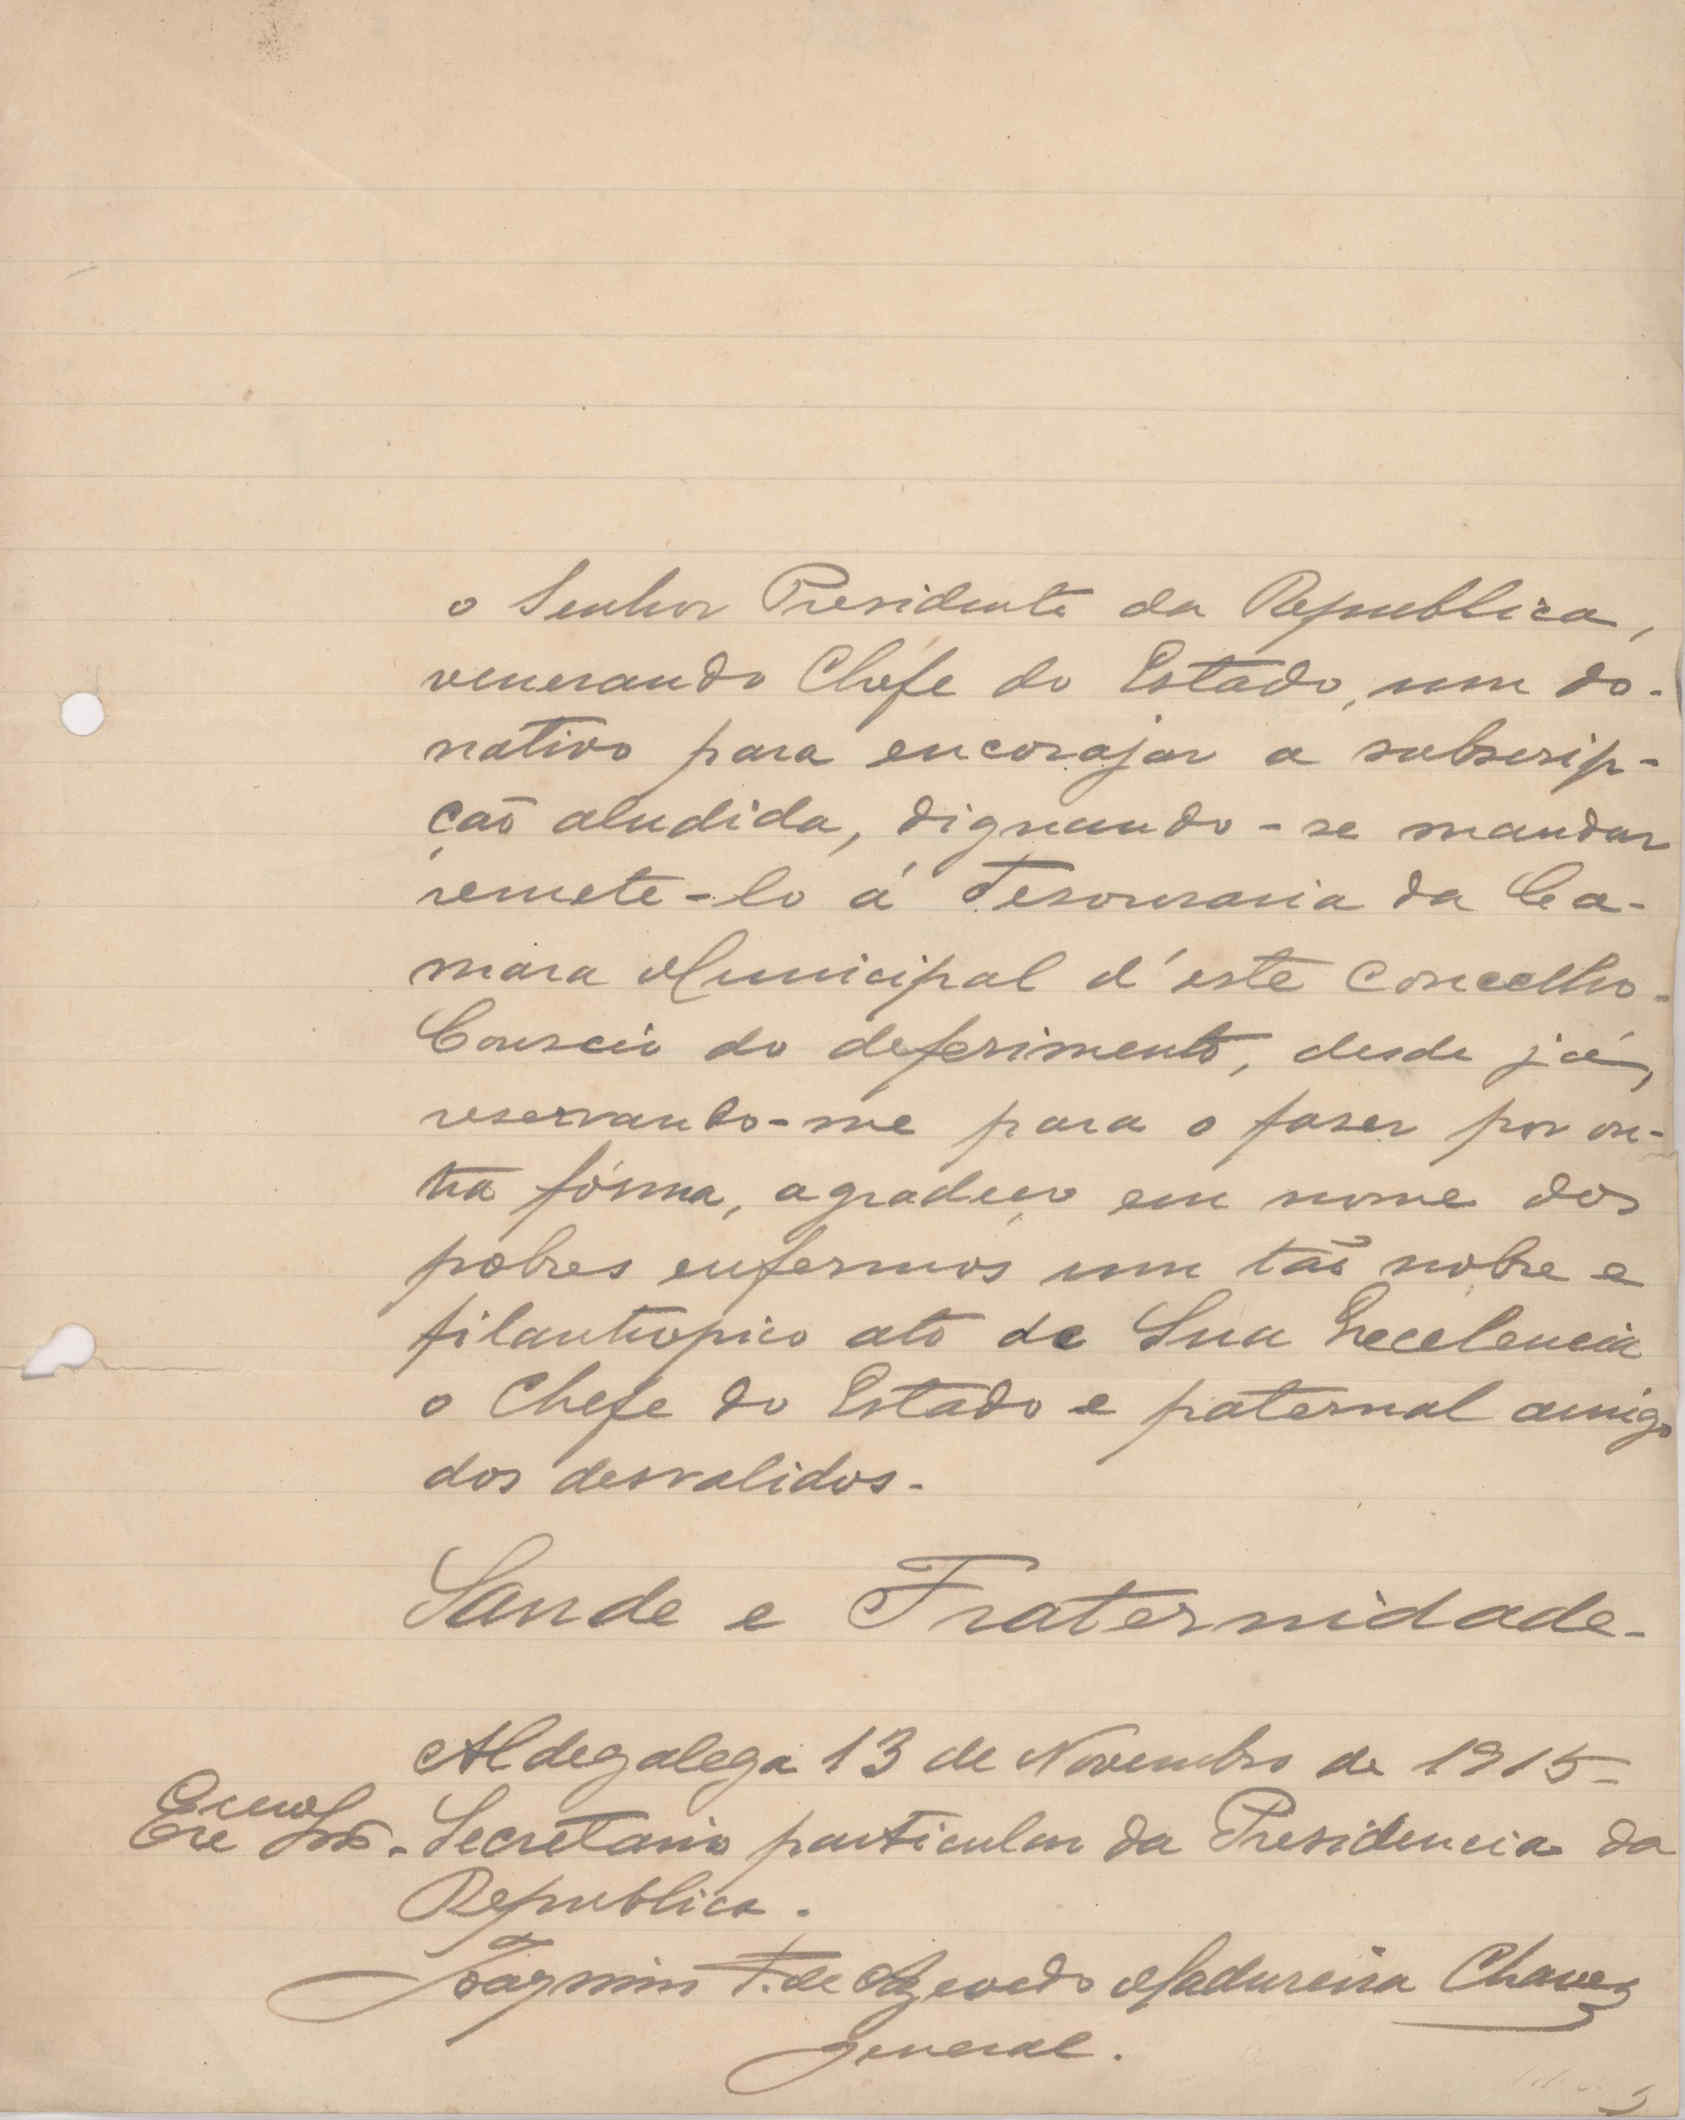 o Senhor Presidente da Republica,
venerando Chefe do Estado, um do-
nativo para encorajar a subscrip-
ção aludida, dignando-se mandar
remete-lo á Tesouraria da Ca-
mara Municipal d'este concelho-
Conscio do deferimento, desde já,
reservando-me para o faser por ou-
tra fórma, agradeço em nome dos
pobres enfermos um tão nobre e
filantropico ato de Sua Excelencia
o Chefe do Estado e paternal amigo
dos desvalidos-
Saude e Fraternidade-
Aldegalega 13 de Novembro de 1915-
Exmo
Snr. Secretario particular da Presidencia da
Republica.
Joaquim F. de Azevedo Madureira Chaves
general.